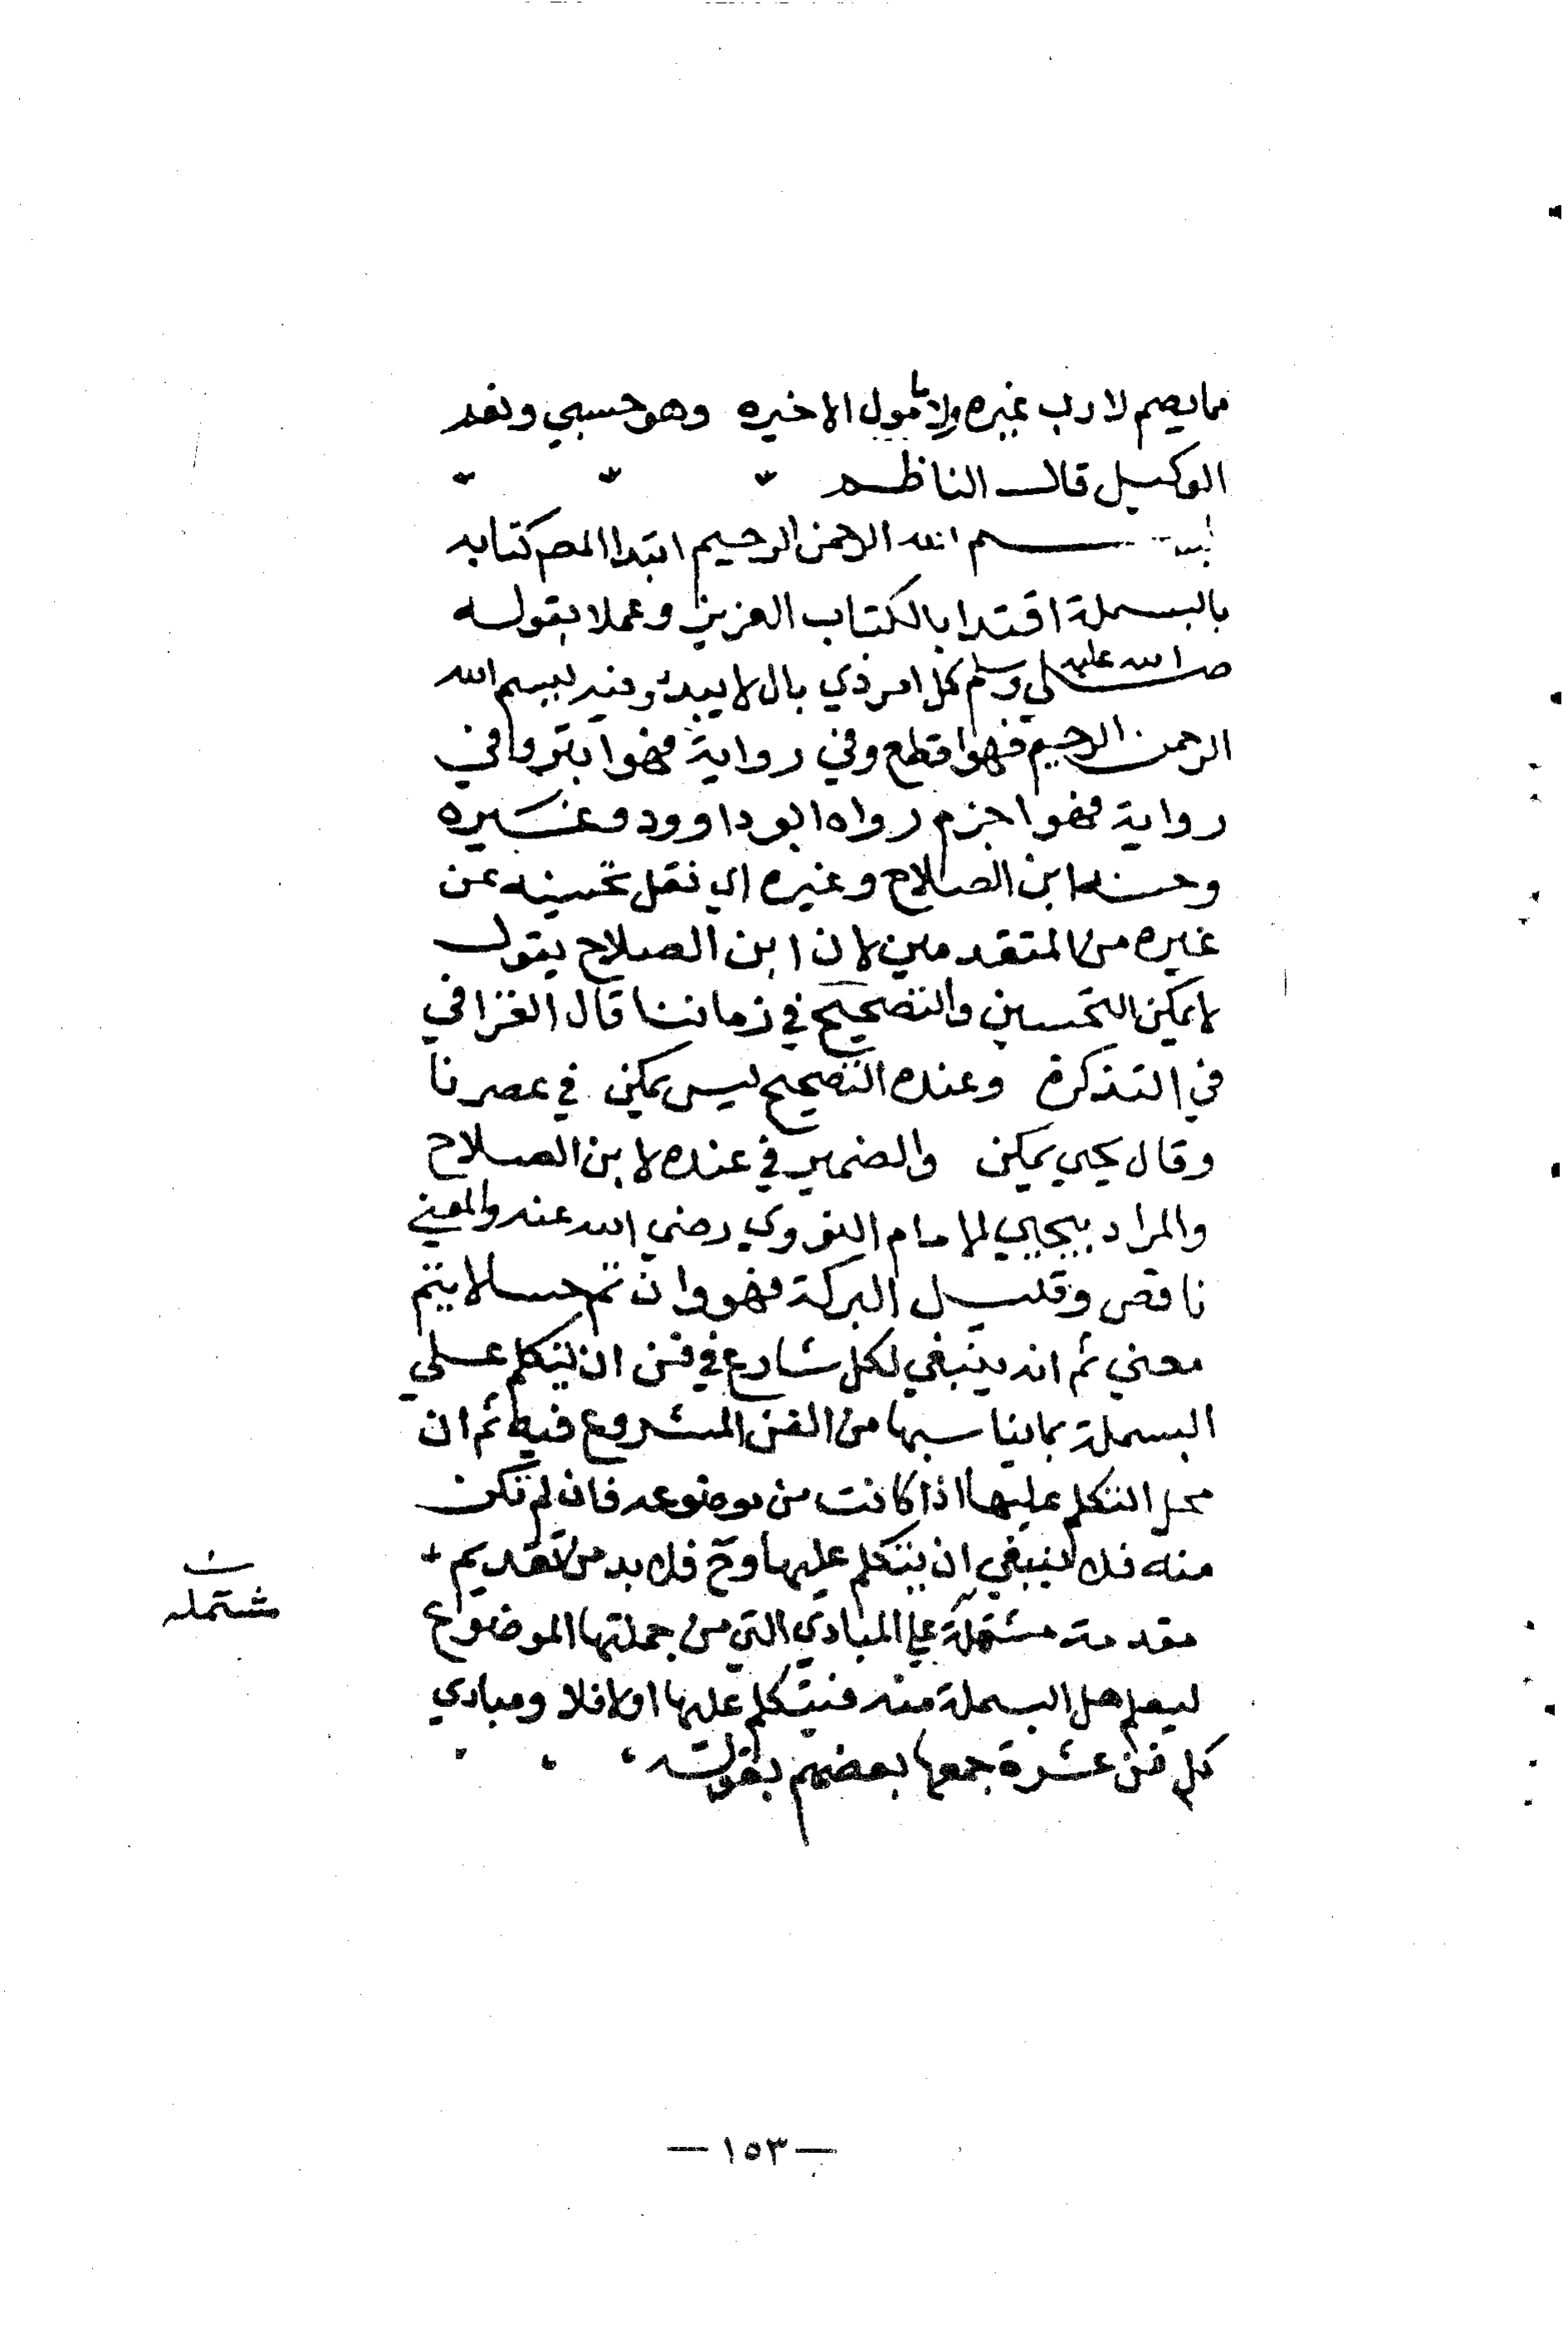 مما يصم لا رب غيره ولا مأمول الا خيره وهو حسبي ونعم
الوكيل قال الناظم
بسم الله الرحمن الرحيم ابتدا المص كتابه
بالبسملة اقتدا بالكتاب العزيز وعملا بقوله
صلي الله عليه وسلم كل امر ذي بال لا يبدؤ فيه ببسم الله
الرحمن الرحيم فهو اقطع وفي رواية فهو ابتر وفي
رواية فهو اجزم رواه ابو داوود وغيره
وحسنه ابن الصلاح وغيره اي نقل تحسينه عن
غيره من المتقدمين لان ابن الصلاح يقول
لا يمكن التحسين والتصحيح في زماننا قال العراقي
في التذكرة وعنده التصحيح ليس يمكن في عصرنا
وقال يحيي يمكن والضمير في عنده لابن الصلاح
والمراد بيحيي الامام النووي رضي الله عنه والمعني
ناقص وقليل البركة فهو وان تم حسا لا يتم
معني ثم انه ينبغي لكل شارع في فن ان يتكلم علي
البسملة بما يناسبها من الفن المشروع فيه ثم ان
محل التكلم عليها اذا كانت من موضوعه فان لم تكن
منه فلا ينبغي ان يتكلم عليها وح فلا بد من تقديم
مقدمة مشتملة علي المبادي التي من جملتها الموضوع
ن
مشتمله
ليعلم هل البسملة منه فيتكلم عليها او لا فلا ومبادي
كل فن عشرة جمعها بعضهم بقوله
— ١٥٣ —